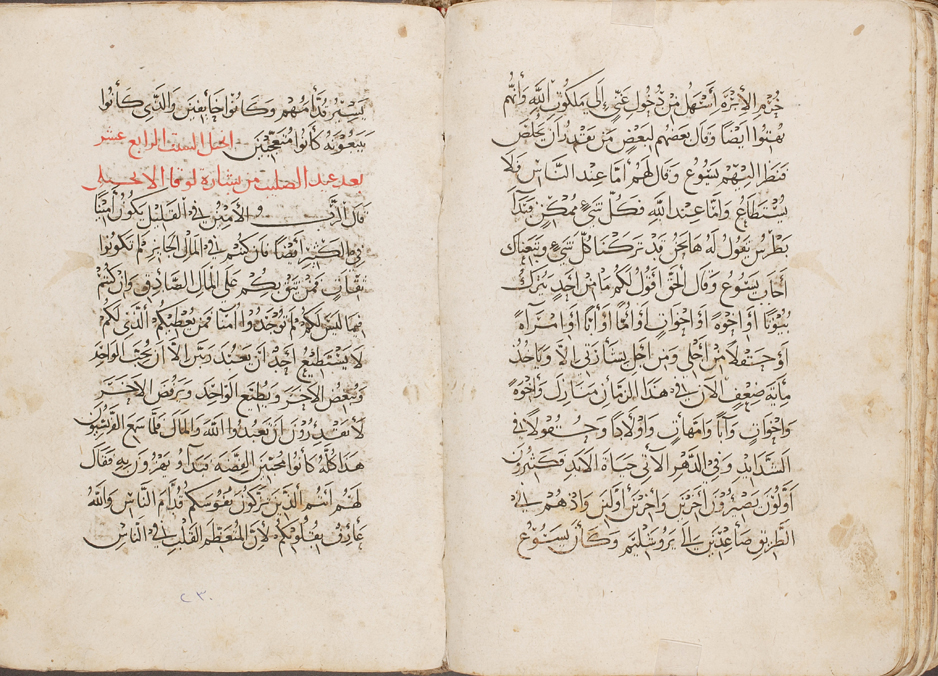 خرم الإبرة أسهل من دخول غني إلى ملكوت الله وانهم
بهتوا ايضا وقال بعضهم لبعض من يقدر ان يخلص
فنظر اليهم يسوع وقال لهم أما عند الناس فلا
يستطاع واما عند الله فكل شيء ممكن فبدأ
بطرس يقول له ها نحن قد تركنا كل شيء وتبعناك
أجاب يسوع وقال الحق اقول لكم ما من أحد يترك
بيوتا أو اخوة أو اخوات أو أما أو أبا أو امرأة
أو حقلا من أجلي ومن اجل بشارتي الا ويأخذ
مأية ضعف الآن في هذا الزمان منازل واخوة
واخوات وآبا وامهات واولادا وحقولا في
الشدايد وفي الدهر الآتي حياة الابد فكثيرون
أولون يصيرون آخرين وآخرين أولين واذ هم في
الطريق صاعدين إلى يروشليم وكان يسوع
يسير قدامهم وكانوا خايفين والذي كانوا
يتبعونه كانوا متعجبين الانجيل السبت الرابع عشر
بعد عيد الصليب من بشارة لوقا الانجيلي
قال الرب والأمين في القليل يكون أمينا
في الكثير أيضا فان كنتم في المال الجاير لم تكونوا
ثقات فمن يثق بكم على المال الصادق وان كنتم
فيما ليس لكم لم توجدوا أمنا فمن يعطيكم الذي لكم
لا يستطيع احد ان يعبد ربين الا أن يحب الواحد
ويبغض الآخر ويطيع الواحد ويرفض الآخر
لا تقدرون أن تعبدوا الله والمال فلما سمع الفريسيون
هذا كله كانوا محبين الفضة فبدأو يهزون به فقال
لهم انتم الذين تزكون نفوسكم قدام الناس والله
عارف بقلوبكم لأن المتعظم القلب في الناس
٢٣٠